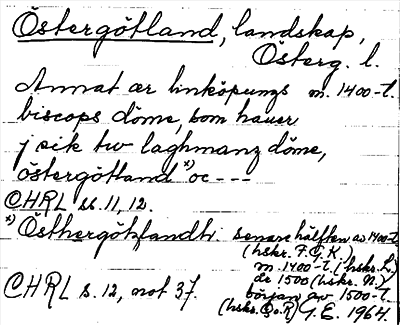 Östergötland, landskap,
Österg. l.
Annat ær linköpungs m. 1400-t.
biscops döme, som hauer
j sik tw laghmanz döme,
östergötland x) oc ---
CHRL ss. 11, 12.
x) Östhergötzfandh:. senare hälften av 1400-t.
(hskr. F. G. K.)
m. 1400-t. (hskr. L.)
År 1500 (hskr. N.)
CHRL s. 12, not 37. början av 1500-t.
(hskr. Q o. R) G. E. 1964.